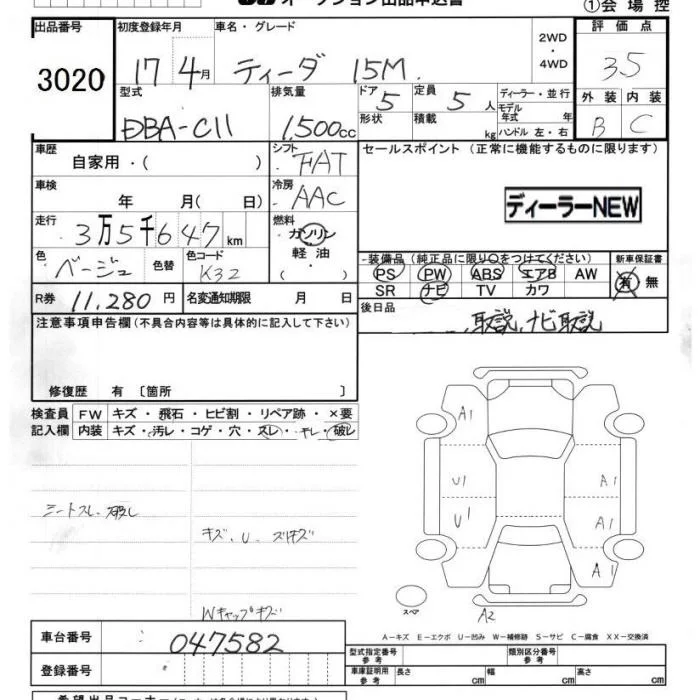 オークション出品申込書
①会場控
出品番号 初度登録年月 車名・グレード 2WD ・ 4WD 評価点
3020 17年 4月 ティーダ 15M 3.5
型式 排気量 ドア 5 定員 5人 ディーラー・並行 外装 内装
DBA-C11 1,500cc 形状 積載 kg モデル年式 年 B C
ハンドル 左・右
車歴 シフト セールスポイント (正常に機能するものに限ります)
自家用・( ) FAT
車検 冷房
年 月( 日) AAC ディーラーNEW
走行 燃料
3万5千647km ガソリン
色 色替 色コード 軽油 装備品 (純正品に限り○をつけてください) 新車保証書
ベージュ K32 ・( ) PS PW ABS エアB AW 有 無
SR ナビ TV カワ
R券 11,280円 名変通知期限 月 日 後日品
取説、ナビ取説
注意事項申告欄 (不具合内容等は具体的に記入して下さい)
修復歴 有 〔箇所 〕
検査員 FW キズ・飛石・ヒビ割・リペア跡・×要
記入欄 内装 キズ・汚レ・コゲ・穴・スレ・ヤレ・破レ
A1
U1 A1
U1 A1
シートスレ、破レ
キズ、U、スリキズ
A1
スペア
Wキャップキズ A2
A－キズ E－エクボ U－凹み W－補修跡 S－サビ C－腐食 XX－交換済
車台番号 047582 型式指定番号 参考 類別区分番号 参考
登録番号 車庫証明用 参考 長さ cm 幅 cm 高さ cm
希望出品コーナー